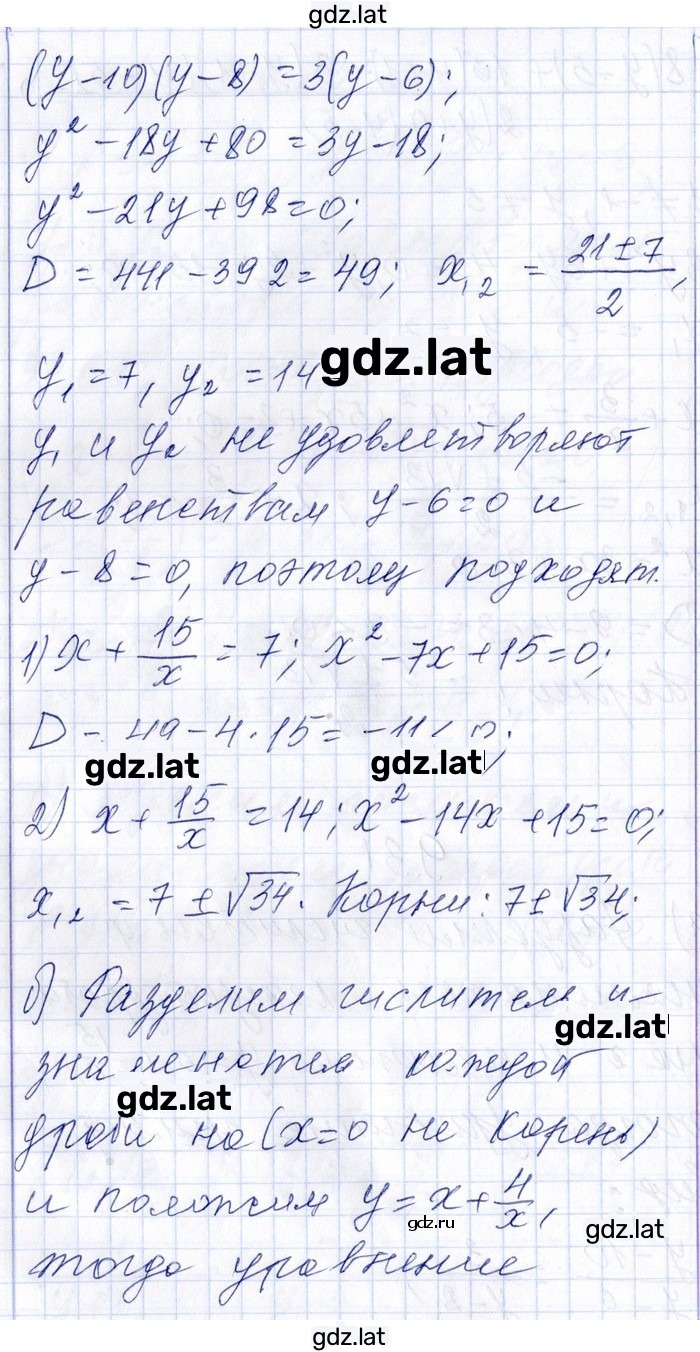 gdz.lat
(y-10)(y-8)=3(y-6);
y²-18y+80=3y-18;
y²-21y+98=0;
D=441-392=49; x₁,₂ = (21±7)/2,
y₁=7, y₂=14
gdz.lat
y₁ и y₂ не удовлетворяют
равенствам y-6=0 и
y-8=0, поэтому подходят.
1) x + 15/x = 7; x²-7x+15=0;
D=49-4·15=-11<0;
gdz.lat gdz.lat
2) x + 15/x = 14; x²-14x+15=0;
x₁,₂ = 7±√34. Корни: 7±√34;
б) Разделим числитель и
gdz.lat
знаменатель каждой
gdz.lat
дроби на (x=0 не корень)
и положим y=x+4/x,
gdz.ru
gdz.lat
тогда уравнение
gdz.lat